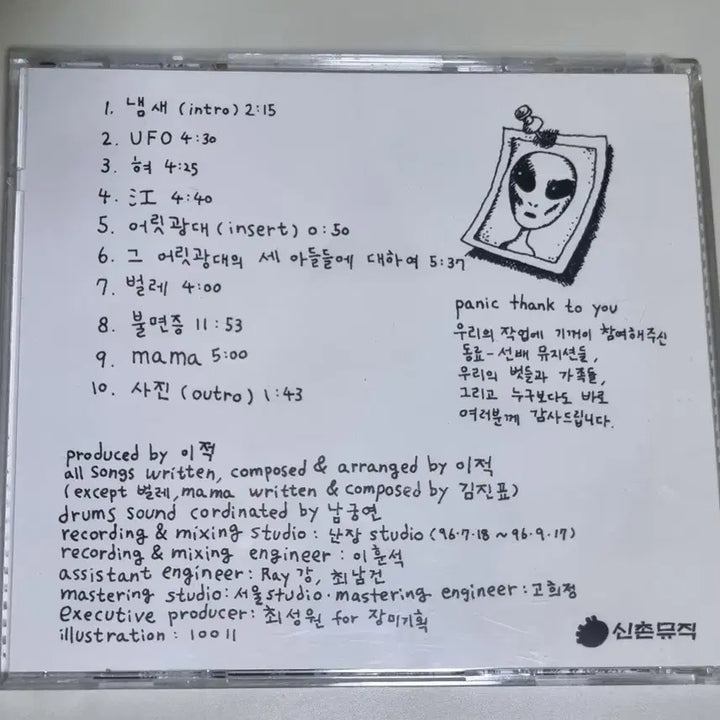 1. 냄새 (intro) 2:15
2. UFO 4:30
3. 혀 4:25
4. 江 4:40
5. 어릿광대 (insert) 0:50
6. 그 어릿광대의 세 아들들에 대하여 5:37
7. 벌레 4:00
8. 불면증 11:53
9. mama 5:00
10. 사진 (outro) 1:43
panic thank to you
우리의 작업에 기꺼이 참여해주신
동료-선배 뮤지션들,
우리의 벗들과 가족들,
그리고 누구보다도 바로
여러분께 감사드립니다.
produced by 이적
all songs written, composed & arranged by 이적
(except 벌레, mama written & composed by 김진표)
drums sound cordinated by 남궁연
recording & mixing studio : 난장 studio (96.7.18 ~ 96.9.17)
recording & mixing engineer : 이훈석
assistant engineer : Ray 강, 최남건
mastering studio : 서울 studio · mastering engineer : 고희정
executive producer : 최성원 for 장미기획
illustration : 10011
신촌뮤직